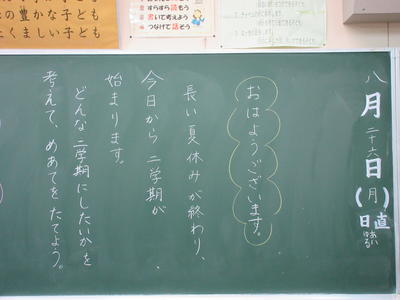 の豊かな子ども
くましい子ども
すらすら読もう
書いて考えよう
つなげて話そう
八月二十六日(月)
日直
あい
はる
おはようございます。
長い夏休みが終わり、
今日から二学期が
始まります。
どんな二学期にしたいかを
考えて、めあてをたてよう。